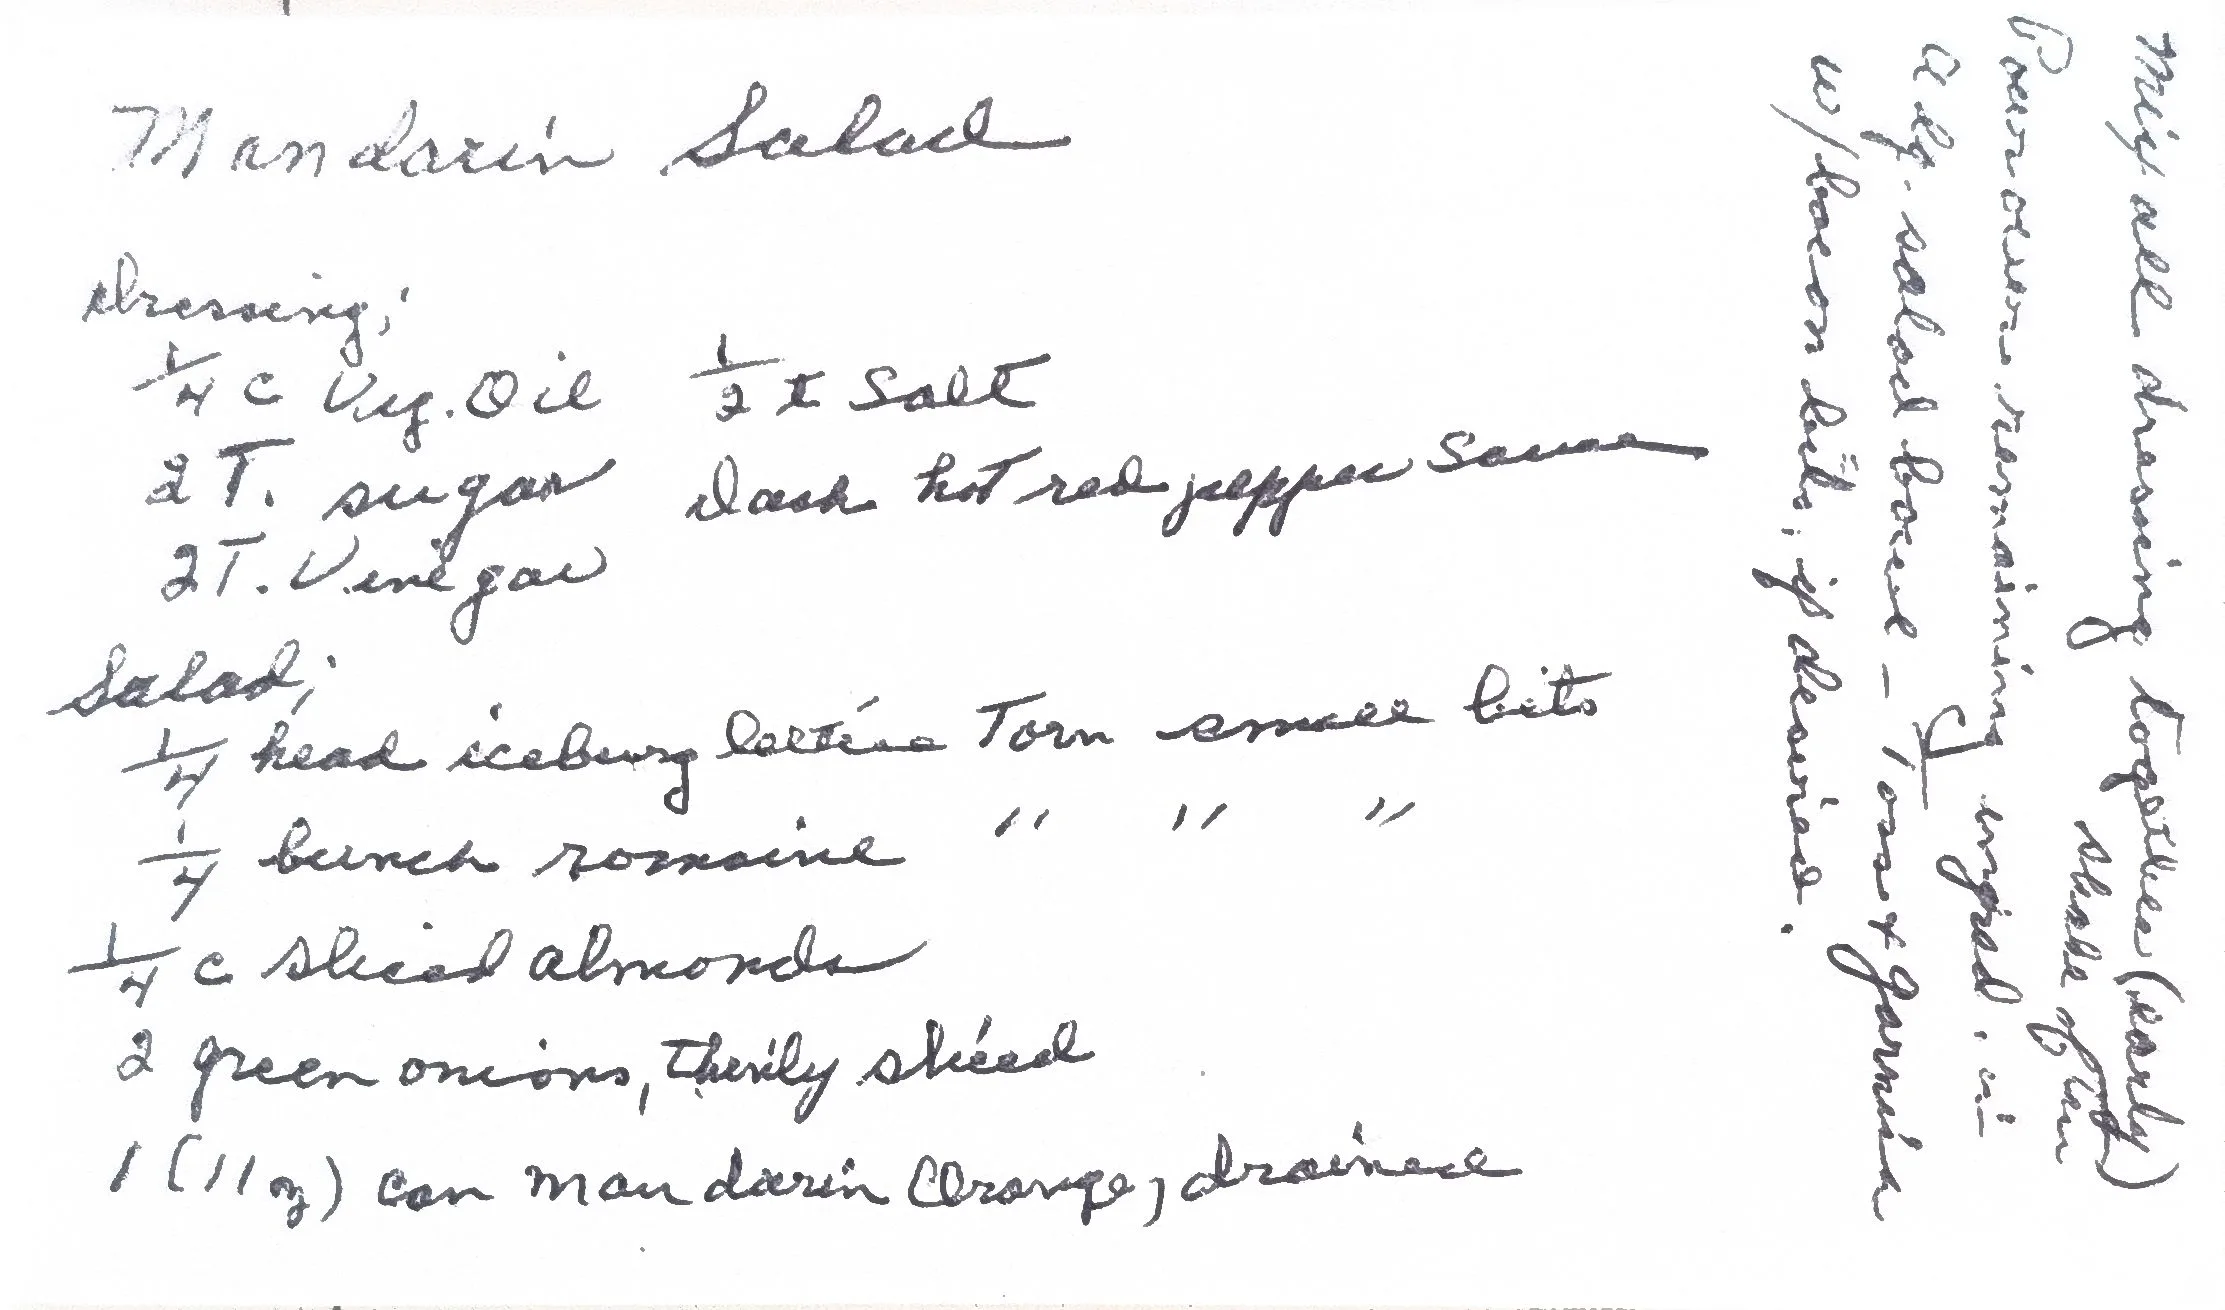 Mandarin Salad
Dressing;
1/4 c Veg. Oil 1/2 t Salt
2 T. sugar Dash hot red pepper sauce
2 T. Vinegar
Salad;
1/4 head iceburg lettuce Torn small bits
1/4 bunch romaine " " "
1/4 c sliced almonds
2 green onions, thinly sliced
1 (11 oz) can mandarin Orange, drained
Mix all dressing together (early)
shake often
Pour over remaining ingred. in
a lg. salad bowl - Toss & garnish
w/bacon bits, if desired.